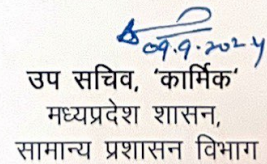 09.9.2024
उप सचिव, 'कार्मिक'
मध्यप्रदेश शासन,
सामान्य प्रशासन विभाग